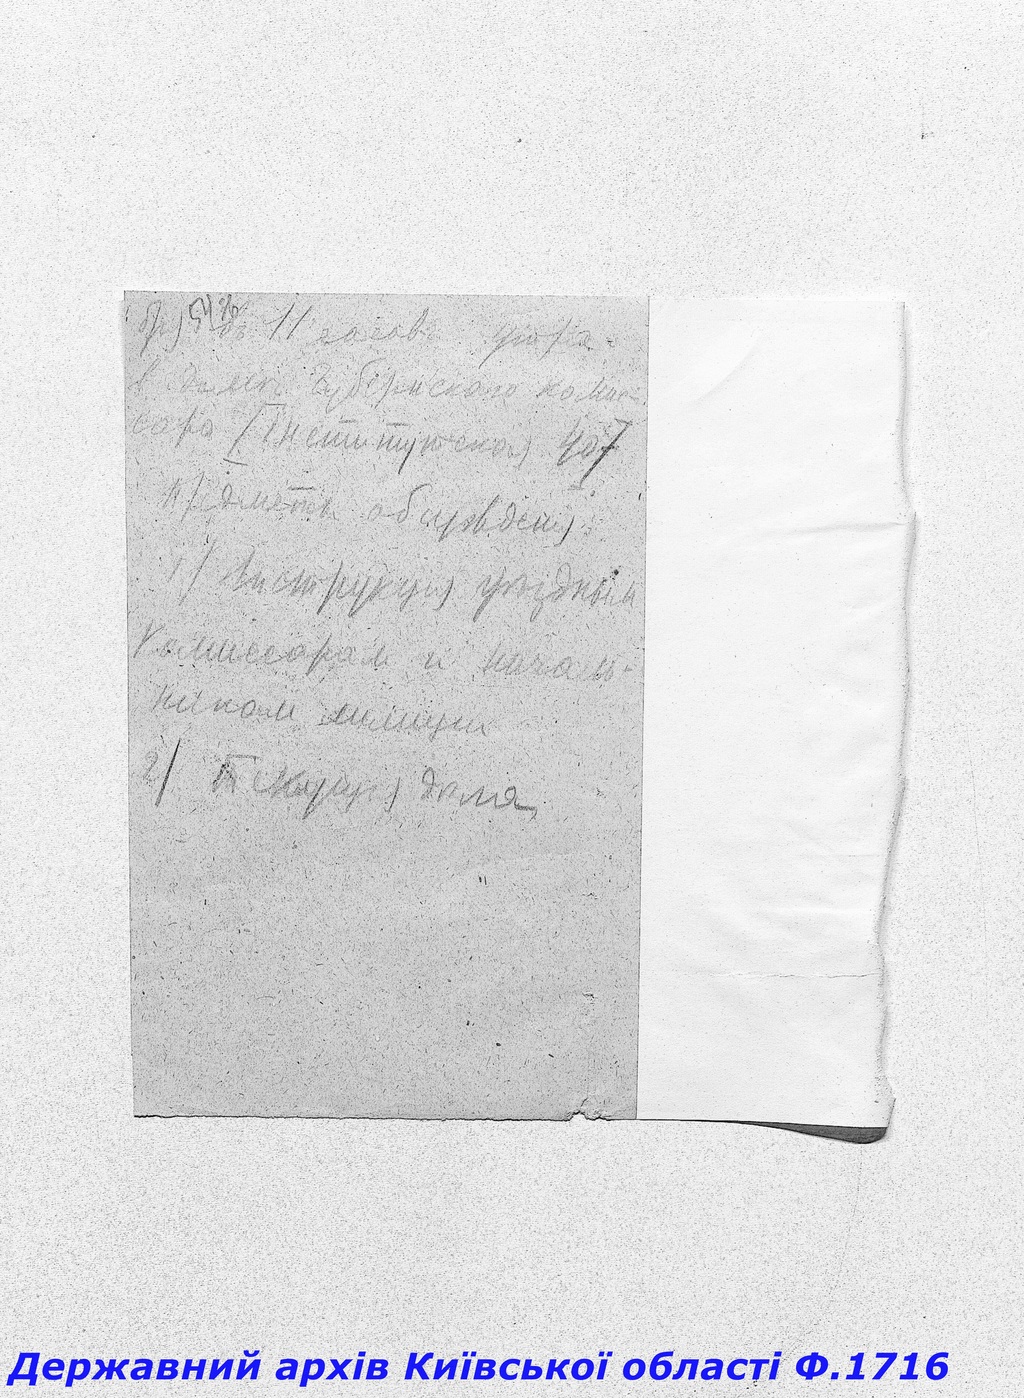 въ 11 часовъ утра
в доме Губернского комис-
сара (Институтская 40/7
предметы обсуждения:
1/ Инструкция уездным
комиссарам и началь-
никам милиции
2/ Текущия дела
Державний архів Київської області Ф.1716